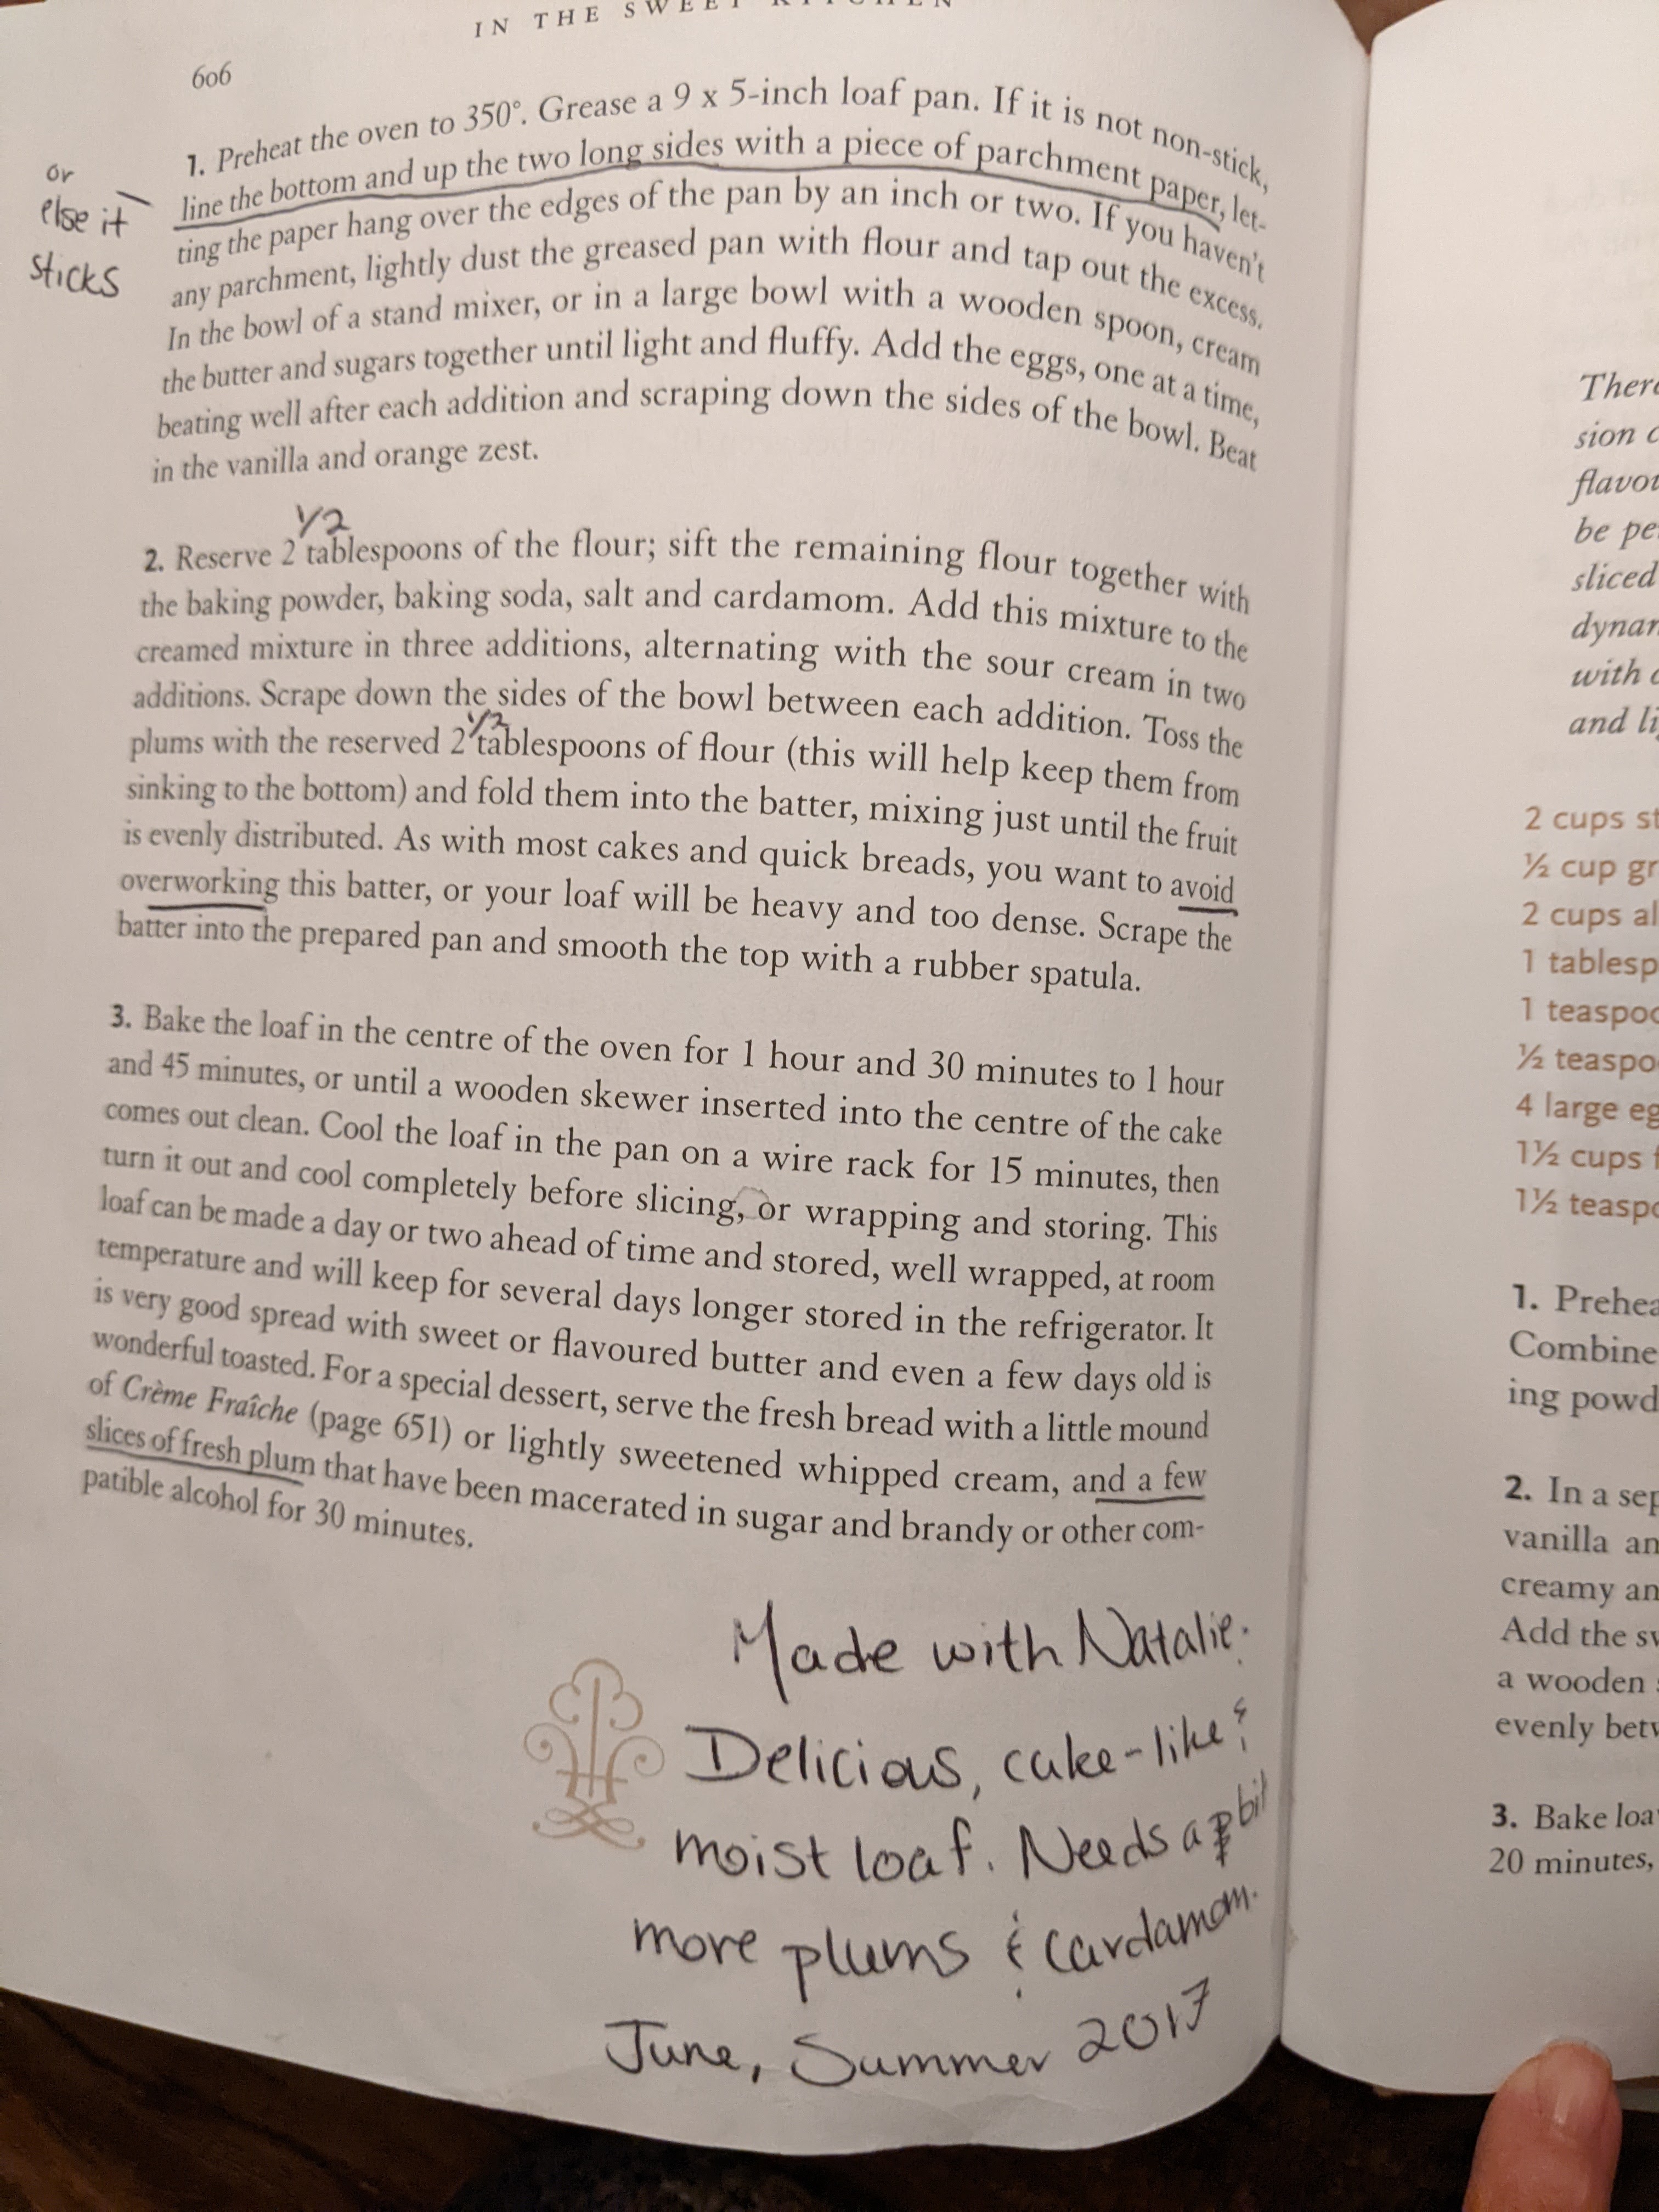 IN THE SWEET KITCHEN
606
1. Preheat the oven to 350°. Grease a 9 x 5-inch loaf pan. If it is not non-stick,
line the bottom and up the two long sides with a piece of parchment paper, let-
ting the paper hang over the edges of the pan by an inch or two. If you haven't
any parchment, lightly dust the greased pan with flour and tap out the excess.
In the bowl of a stand mixer, or in a large bowl with a wooden spoon, cream
the butter and sugars together until light and fluffy. Add the eggs, one at a time,
beating well after each addition and scraping down the sides of the bowl. Beat
in the vanilla and orange zest.
or
else it
sticks
1/2
2. Reserve 2 tablespoons of the flour; sift the remaining flour together with
the baking powder, baking soda, salt and cardamom. Add this mixture to the
creamed mixture in three additions, alternating with the sour cream in two
additions. Scrape down the sides of the bowl between each addition. Toss the
1/2
plums with the reserved 2 tablespoons of flour (this will help keep them from
sinking to the bottom) and fold them into the batter, mixing just until the fruit
is evenly distributed. As with most cakes and quick breads, you want to avoid
overworking this batter, or your loaf will be heavy and too dense. Scrape the
batter into the prepared pan and smooth the top with a rubber spatula.
3. Bake the loaf in the centre of the oven for 1 hour and 30 minutes to 1 hour
and 45 minutes, or until a wooden skewer inserted into the centre of the cake
comes out clean. Cool the loaf in the pan on a wire rack for 15 minutes, then
turn it out and cool completely before slicing, or wrapping and storing. This
loaf can be made a day or two ahead of time and stored, well wrapped, at room
temperature and will keep for several days longer stored in the refrigerator. It
is very good spread with sweet or flavoured butter and even a few days old is
wonderful toasted. For a special dessert, serve the fresh bread with a little mound
of Crème Fraîche (page 651) or lightly sweetened whipped cream, and a few
slices of fresh plum that have been macerated in sugar and brandy or other com-
patible alcohol for 30 minutes.
Made with Natalie.
Delicious, cake-like &
moist loaf. Needs a bit
more plums & cardamom.
June, Summer 2017
There
sion
flavou
be pe
sliced
dynam
with
and li
2 cups st
½ cup gr
2 cups al
1 tablesp
1 teaspoo
½ teaspo
4 large eg
1½ cups f
1½ teaspo
1. Prehea
Combine
ing powd
2. In a sep
vanilla an
creamy an
Add the sw
a wooden
evenly betw
3. Bake loa
20 minutes,